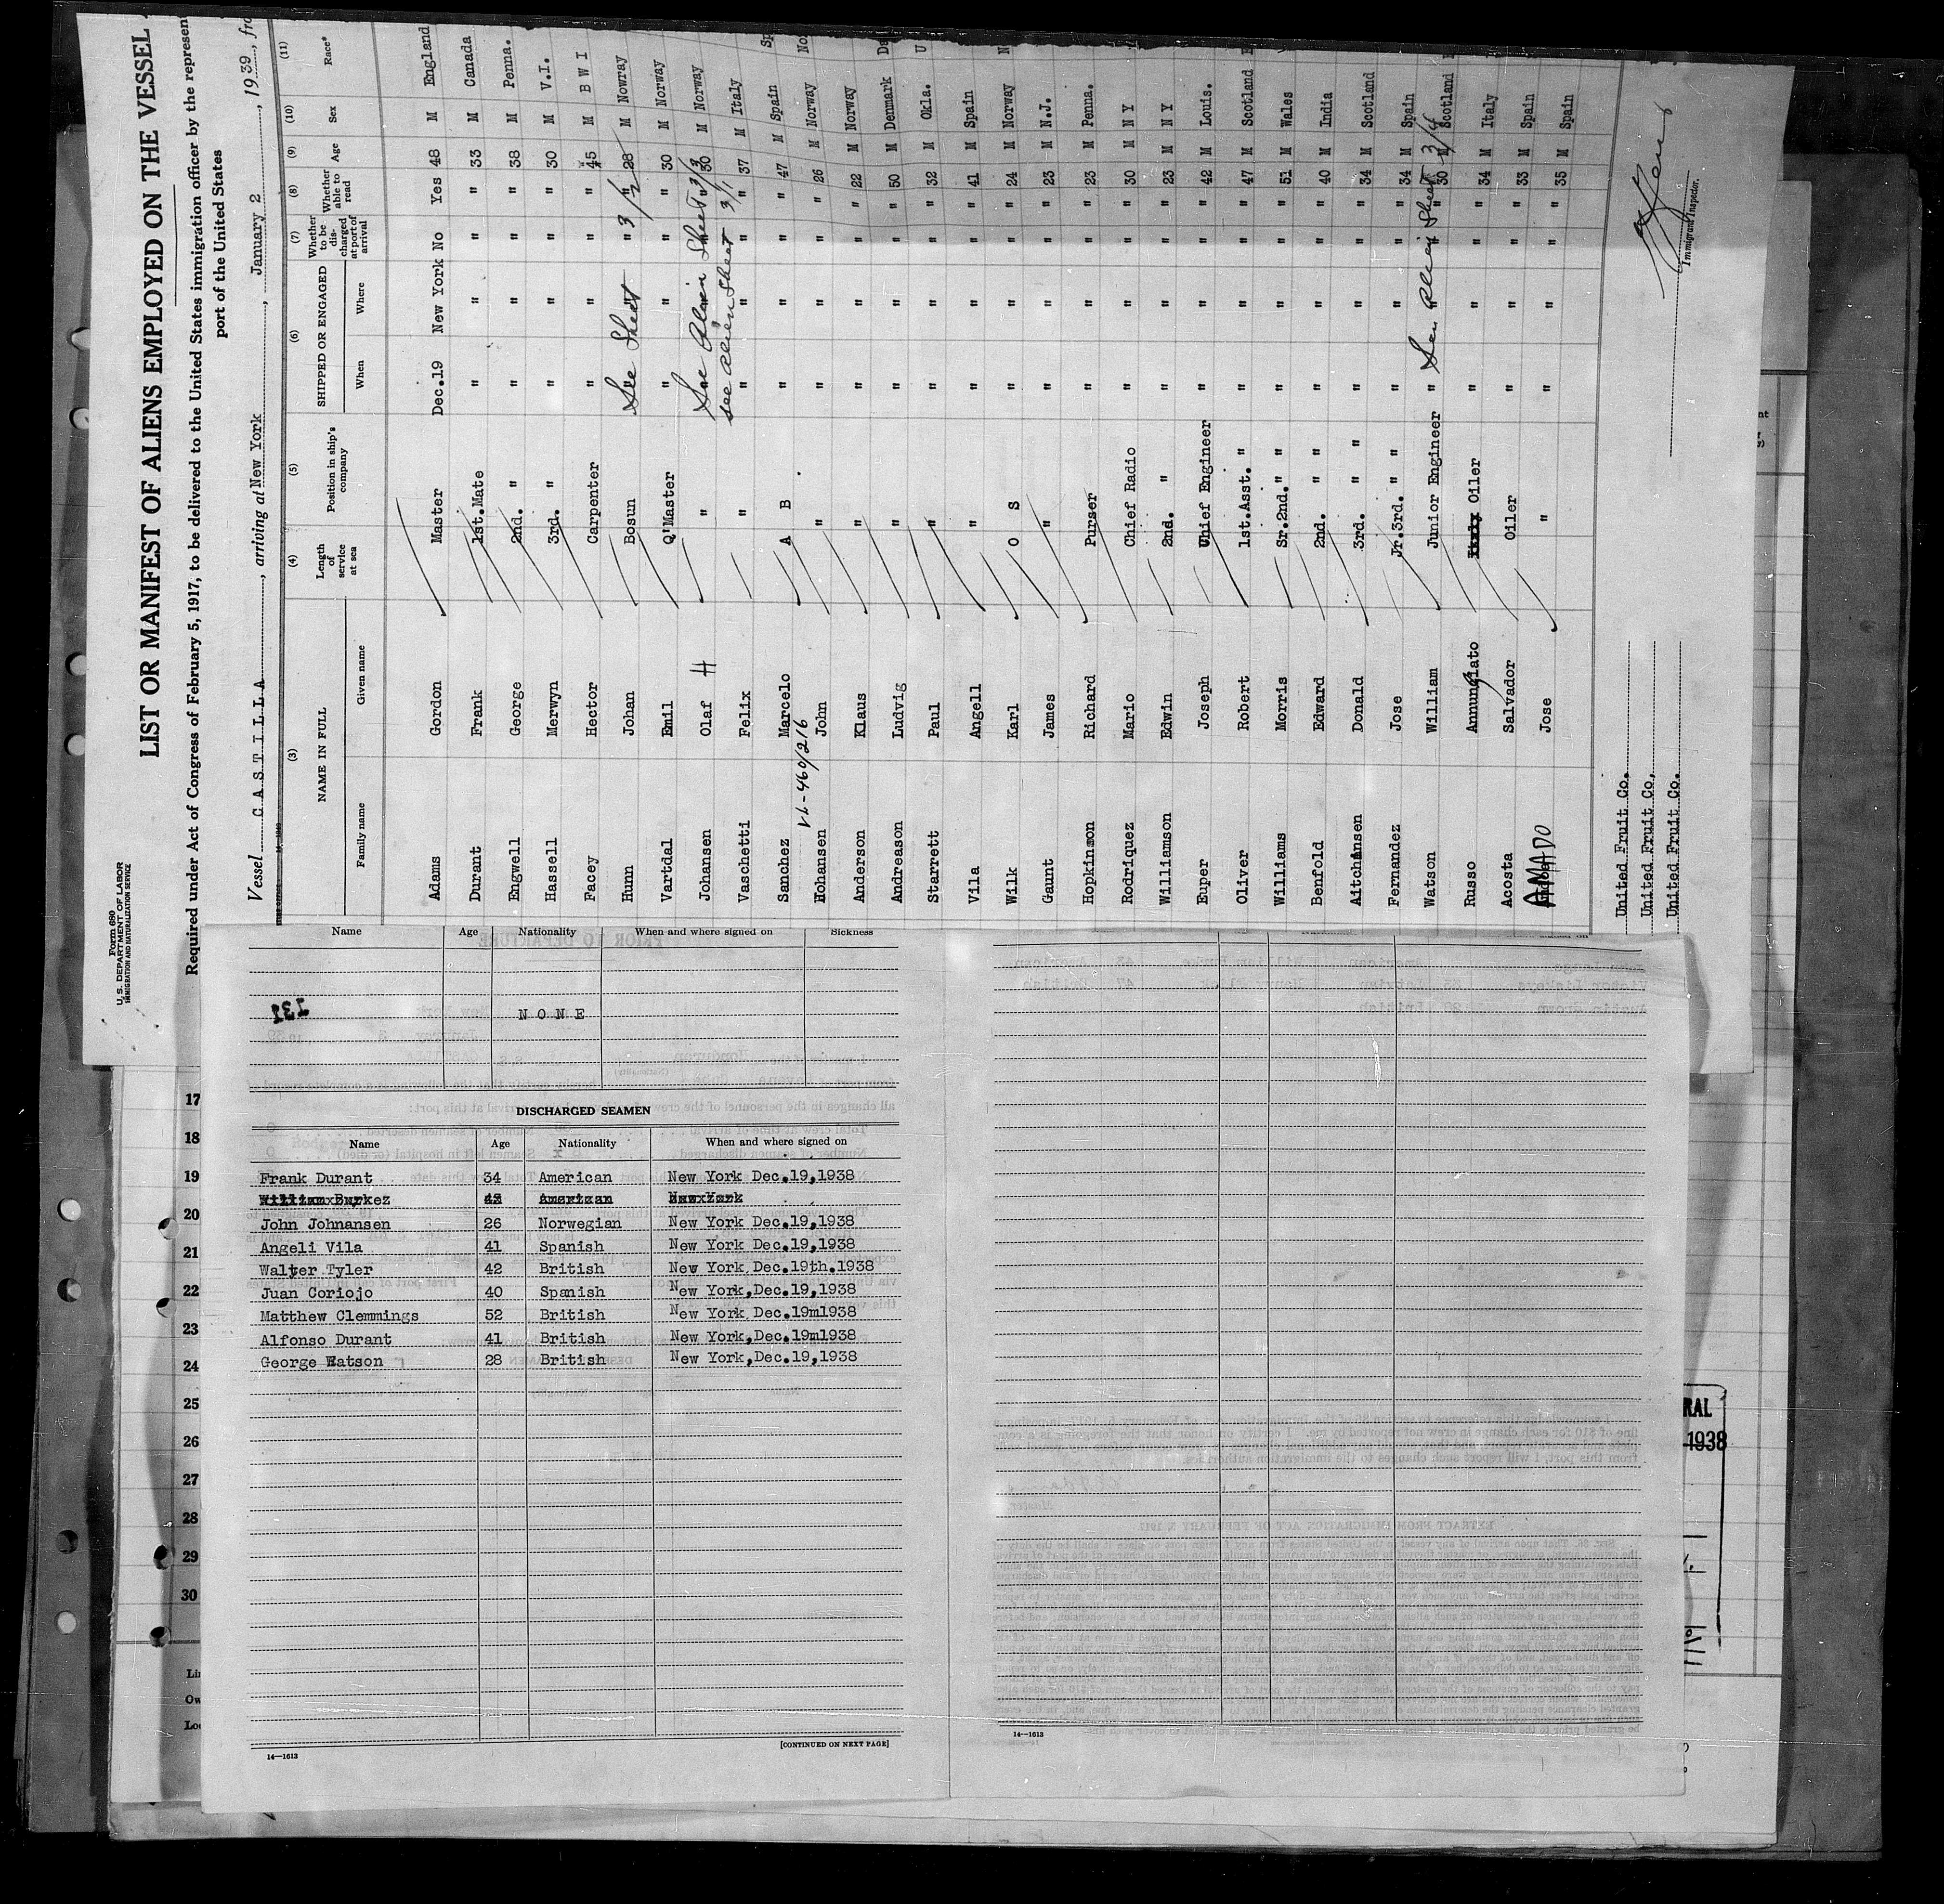 Form 680
U. S. DEPARTMENT OF LABOR
IMMIGRATION AND NATURALIZATION SERVICE
LIST OR MANIFEST OF ALIENS EMPLOYED ON THE VESSEL
Required under Act of Congress of February 5, 1917, to be delivered to the United States immigration officer by the represen
port of the United States
Vessel CASTILLA, arriving at New York, January 2, 1939, fro
(3) (4) (5) (6) (7) (8) (9) (10) (11)
NAME IN FULL Length of service at sea Position in ship's company SHIPPED OR ENGAGED Whether to be discharged at port of arrival Whether able to read Age Sex Race*
Family name Given name When Where
Adams Gordon Master Dec.19 New York No Yes 48 M England
Durant Frank 1st.Mate " " " " 33 M Canada
Engwell George 2nd. " " " " " 38 M Penna.
Hassell Merwyn 3rd. " " " " " 30 M V.I.
Facey Hector Carpenter " " " " 45 M B W I
Hunn Johan Bosun See Sheet " 3/2 " 28 M Nowray
Vartdal Emil Q'Master " " " " 30 M Norway
Johansen Olaf H " See Alien Sheet 3/3 30 M Norway
Vaschetti Felix " see alien sheet 3/1 " 37 M Italy
Sanchez Marcelo A B " " " " 47 M Spain Sp
VL-460/216
Johansen John " " " " " 26 M Norway No
Anderson Klaus " " " " " 22 M Norway
Andreason Ludvig " " " " " 50 M Denmark Da
Starrett Paul " " " " " 32 M Okla. U
Vila Angell " " " " " 41 M Spain
Wilk Karl O S " " " " 24 M Norway N
Gaunt James " " " " " 23 M N.J.
Hopkinson Richard Purser " " " " 23 M Penna.
Rodriquez Mario Chief Radio " " " " 30 M N Y
Williamson Edwin 2nd. " " " " " 23 M N Y
Euper Joseph Chief Engineer " " " " 42 M Louis.
Oliver Robert 1st.Asst. " " " " " 47 M Scotland
Williams Morris Sr.2nd. " " " " " " 51 M Wales
Benfold Edward 2nd. " " " " " " 40 M India
Aitchinsen Donald 3rd. " " " " " " 34 M Scotland
Fernandez Jose Jr.3rd. " " " " " " 34 M Spain
Watson William Junior Engineer " See Alien Sheet 3/4 30 M Scotland
Russo Annunziato Oiler " " " " 34 M Italy
Acosta Salvador Oiler " " " " 33 M Spain
AMADO Jose " " " " " 35 M Spain
United Fruit Co.
United Fruit Co.
United Fruit Co.
Immigrant Inspector.
Name Age Nationality When and where signed on Sickness
137
NONE
DISCHARGED SEAMEN
Name Age Nationality When and where signed on
Frank Durant 34 American New York Dec.19,1938
John Johnansen 26 Norwegian New York Dec.19,1938
Angeli Vila 41 Spanish New York Dec.19,1938
Walter Tyler 42 British New York Dec.19th.1938
Juan Coriojo 40 Spanish New York,Dec.19,1938
Matthew Clemmings 52 British New York Dec.19m1938
Alfonso Durant 41 British New York,Dec.19m1938
George Watson 28 British New York,Dec.19,1938
14—1613
[CONTINUED ON NEXT PAGE]
14—1613
17
18
19
20
21
22
23
24
25
26
27
28
29
30
Lin
Ow
Loc
RAL
1938